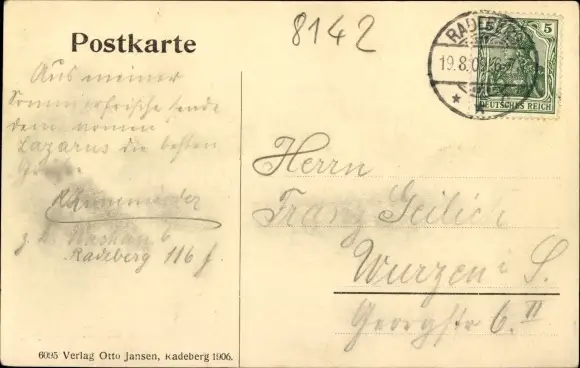 Postkarte
8142
RADEBERG
19.8.09.6-7
5
DEUTSCHES REICH
Aus meiner
Sommerfrische sende
dem
Lazarus die besten
z. Z.
Radeberg 116 f.
Herrn
Franz
Wurzen i. S.
Georgstr 6. II
6095 Verlag Otto Jansen, Radeberg 1906.